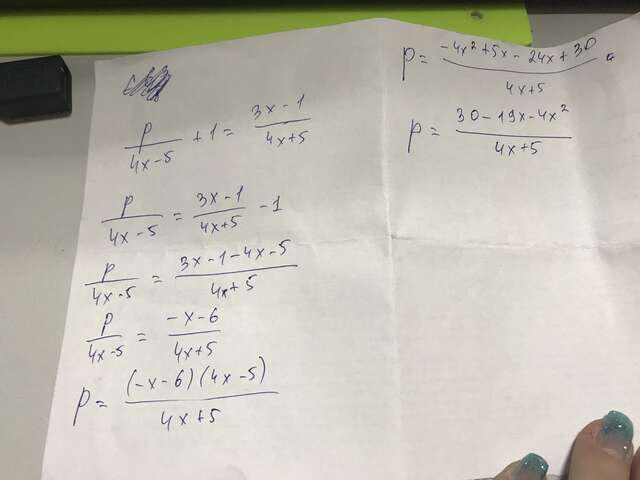 p/(4x-5) + 1 = (3x-1)/(4x+5)
p/(4x-5) = (3x-1)/(4x+5) - 1
p/(4x-5) = (3x-1-4x-5)/(4x+5)
p/(4x-5) = (-x-6)/(4x+5)
p = (-x-6)(4x-5)/(4x+5)
p = (-4x²+5x-24x+30)/(4x+5)
p = (30-19x-4x²)/(4x+5)